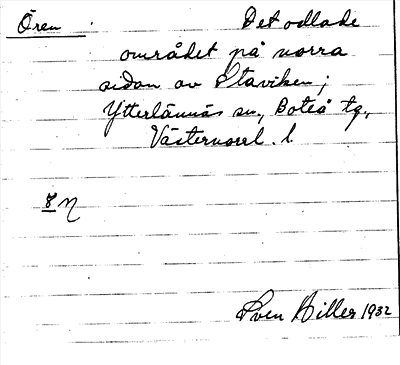 Ören. Det odlade
området på norra
sidan av Staviken;
Ytterlännäs sn, Boteå tg,
Västernorrl. l.
8
Sven Hiller 1932